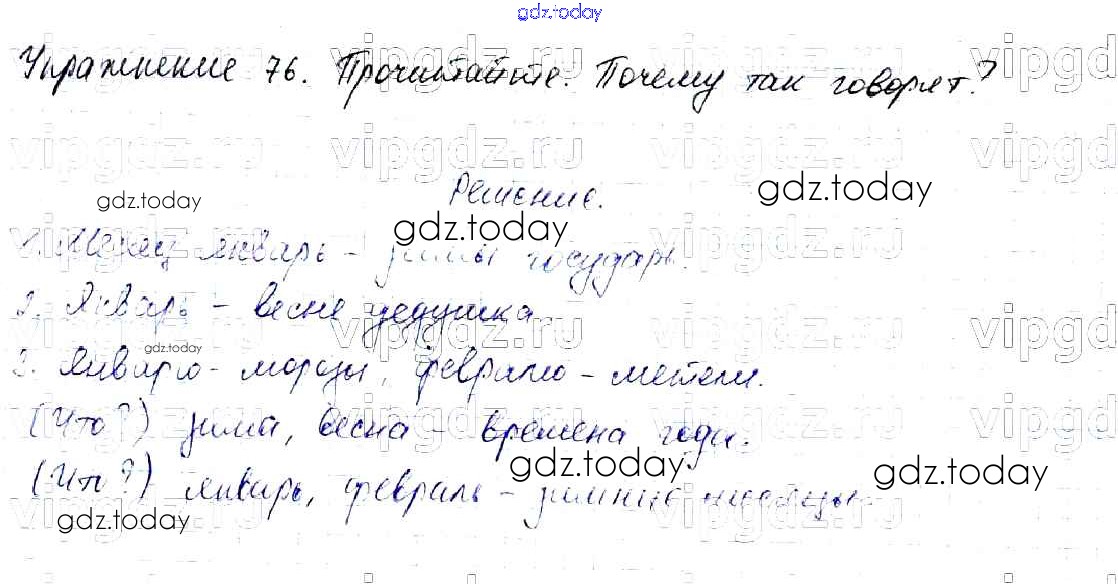 gdz.today
Упражнение 76. Прочитайте. Почему так говорят?
vipgdz.ru
vipgdz.ru vipgdz.ru vipgd
Решение.
gdz.today gdz.today
gdz.today
1. Месяц январь - зимы государь.
2. Январь - весне дедушка.
vipgdz.ru vipgdz.ru vipgd
gdz.today
3. Январю - морозы, февралю - метели.
(Что?) зима, весна - времена года.
gdz.today gdz.today
(Что?) январь, февраль - зимние месяцы.
gdz.today